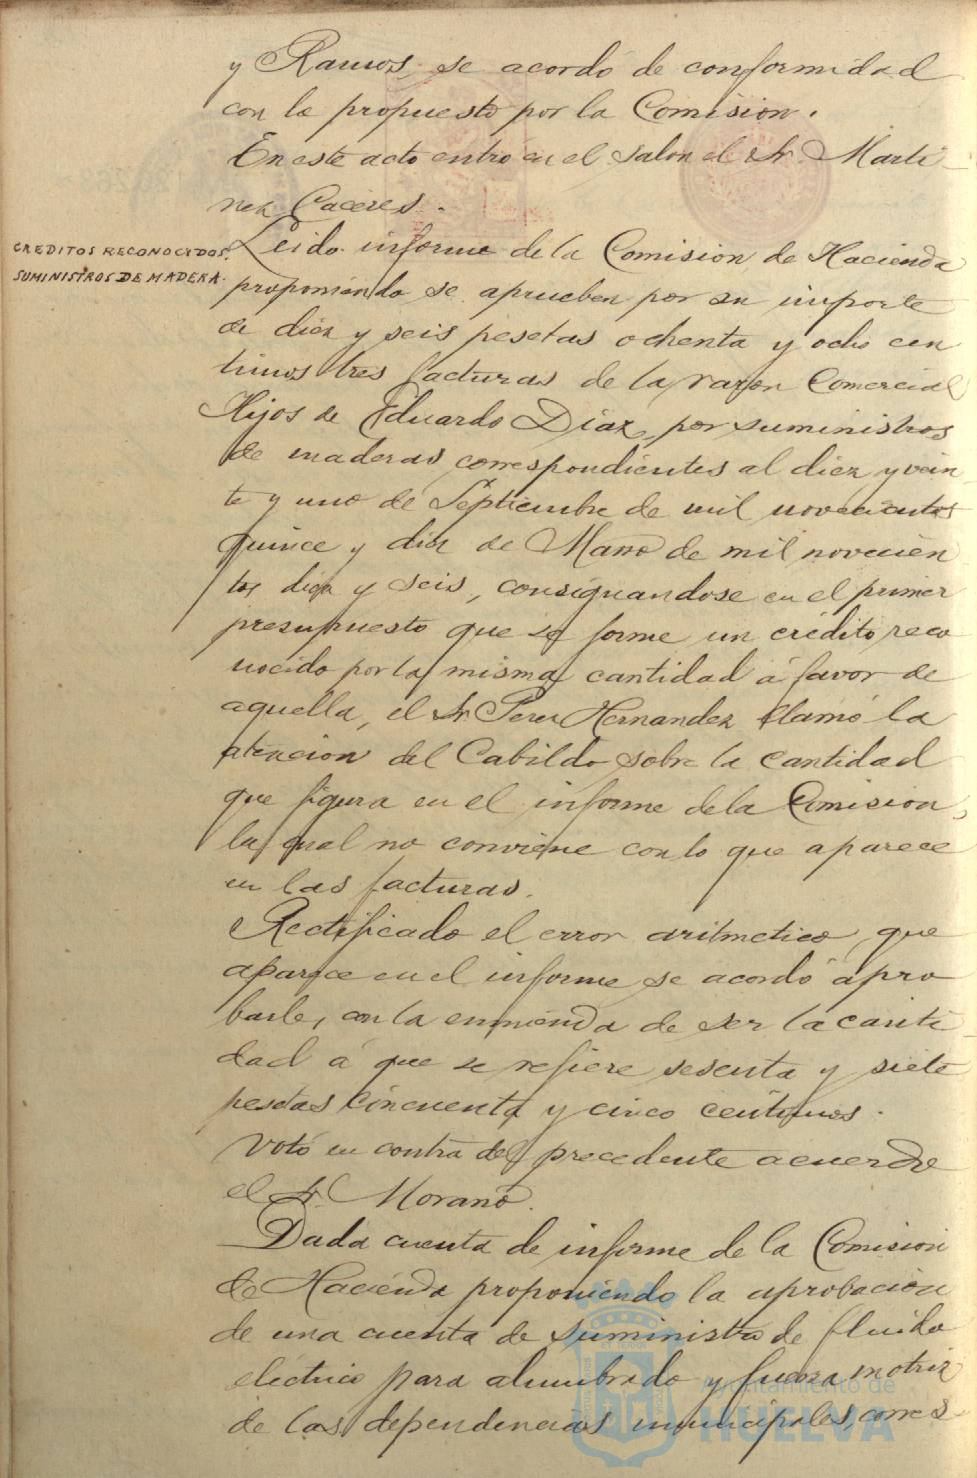 y Ramos, se acordó de conformidad
con lo propuesto por la Comision.
En este acto entro en el salon el Sr. Marti-
nez Caceres.
CREDITOS RECONOCIDOS.
SUMINISTROS DE MADERA.
Leido informe de la Comision de Hacienda
proponiendo se aprueben por su importe
de diez y seis pesetas ochenta y ocho cen
timos tres facturas de la razon Comercial
Hijos de Eduardo Diaz, por suministros
de maderas correspondientes al diez y vein
te y uno de Septiembre de mil novecientos
quince y diez de Marzo de mil novecien
tos diez y seis, consignandose en el primer
presupuesto que se forme un crédito reco
nocido por la misma cantidad á favor de
aquella, el Sr. Perez Hernandez llamó la
atencion del Cabildo sobre la cantidad
que figura en el informe de la Comision,
la cual no conviene con lo que aparece
en las facturas.
Rectificado el error aritmetico, que
aparece en el informe se acordó apro
barle, con la enmienda de ser la canti-
dad á que se refiere sesenta y siete
pesetas cincuenta y cinco centimos.
Votó en contra del precedente acuerdo
el Sr. Morano.
Dada cuenta de informe de la Comision
de Hacienda proponiendo la aprobacion
de una cuenta de suministro de fluido
eléctrico para alumbrado y fuerza motriz
de las dependencias municipales, corres-
Ayuntamiento de
HUELVA